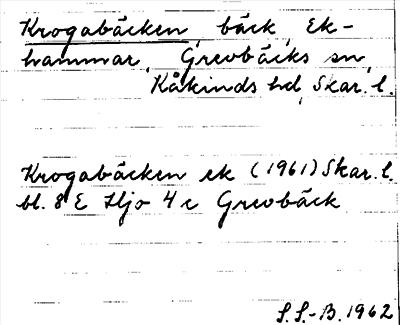 Krogabäcken, bäck, Ek-
hammar, Grevbäcks sn,
Kåkinds hd, Skar. l.
Krogabäcken ek (1961) Skar. l.
bl. 8 E Hjo 4 c Grevbäck
S. S.-B. 1962